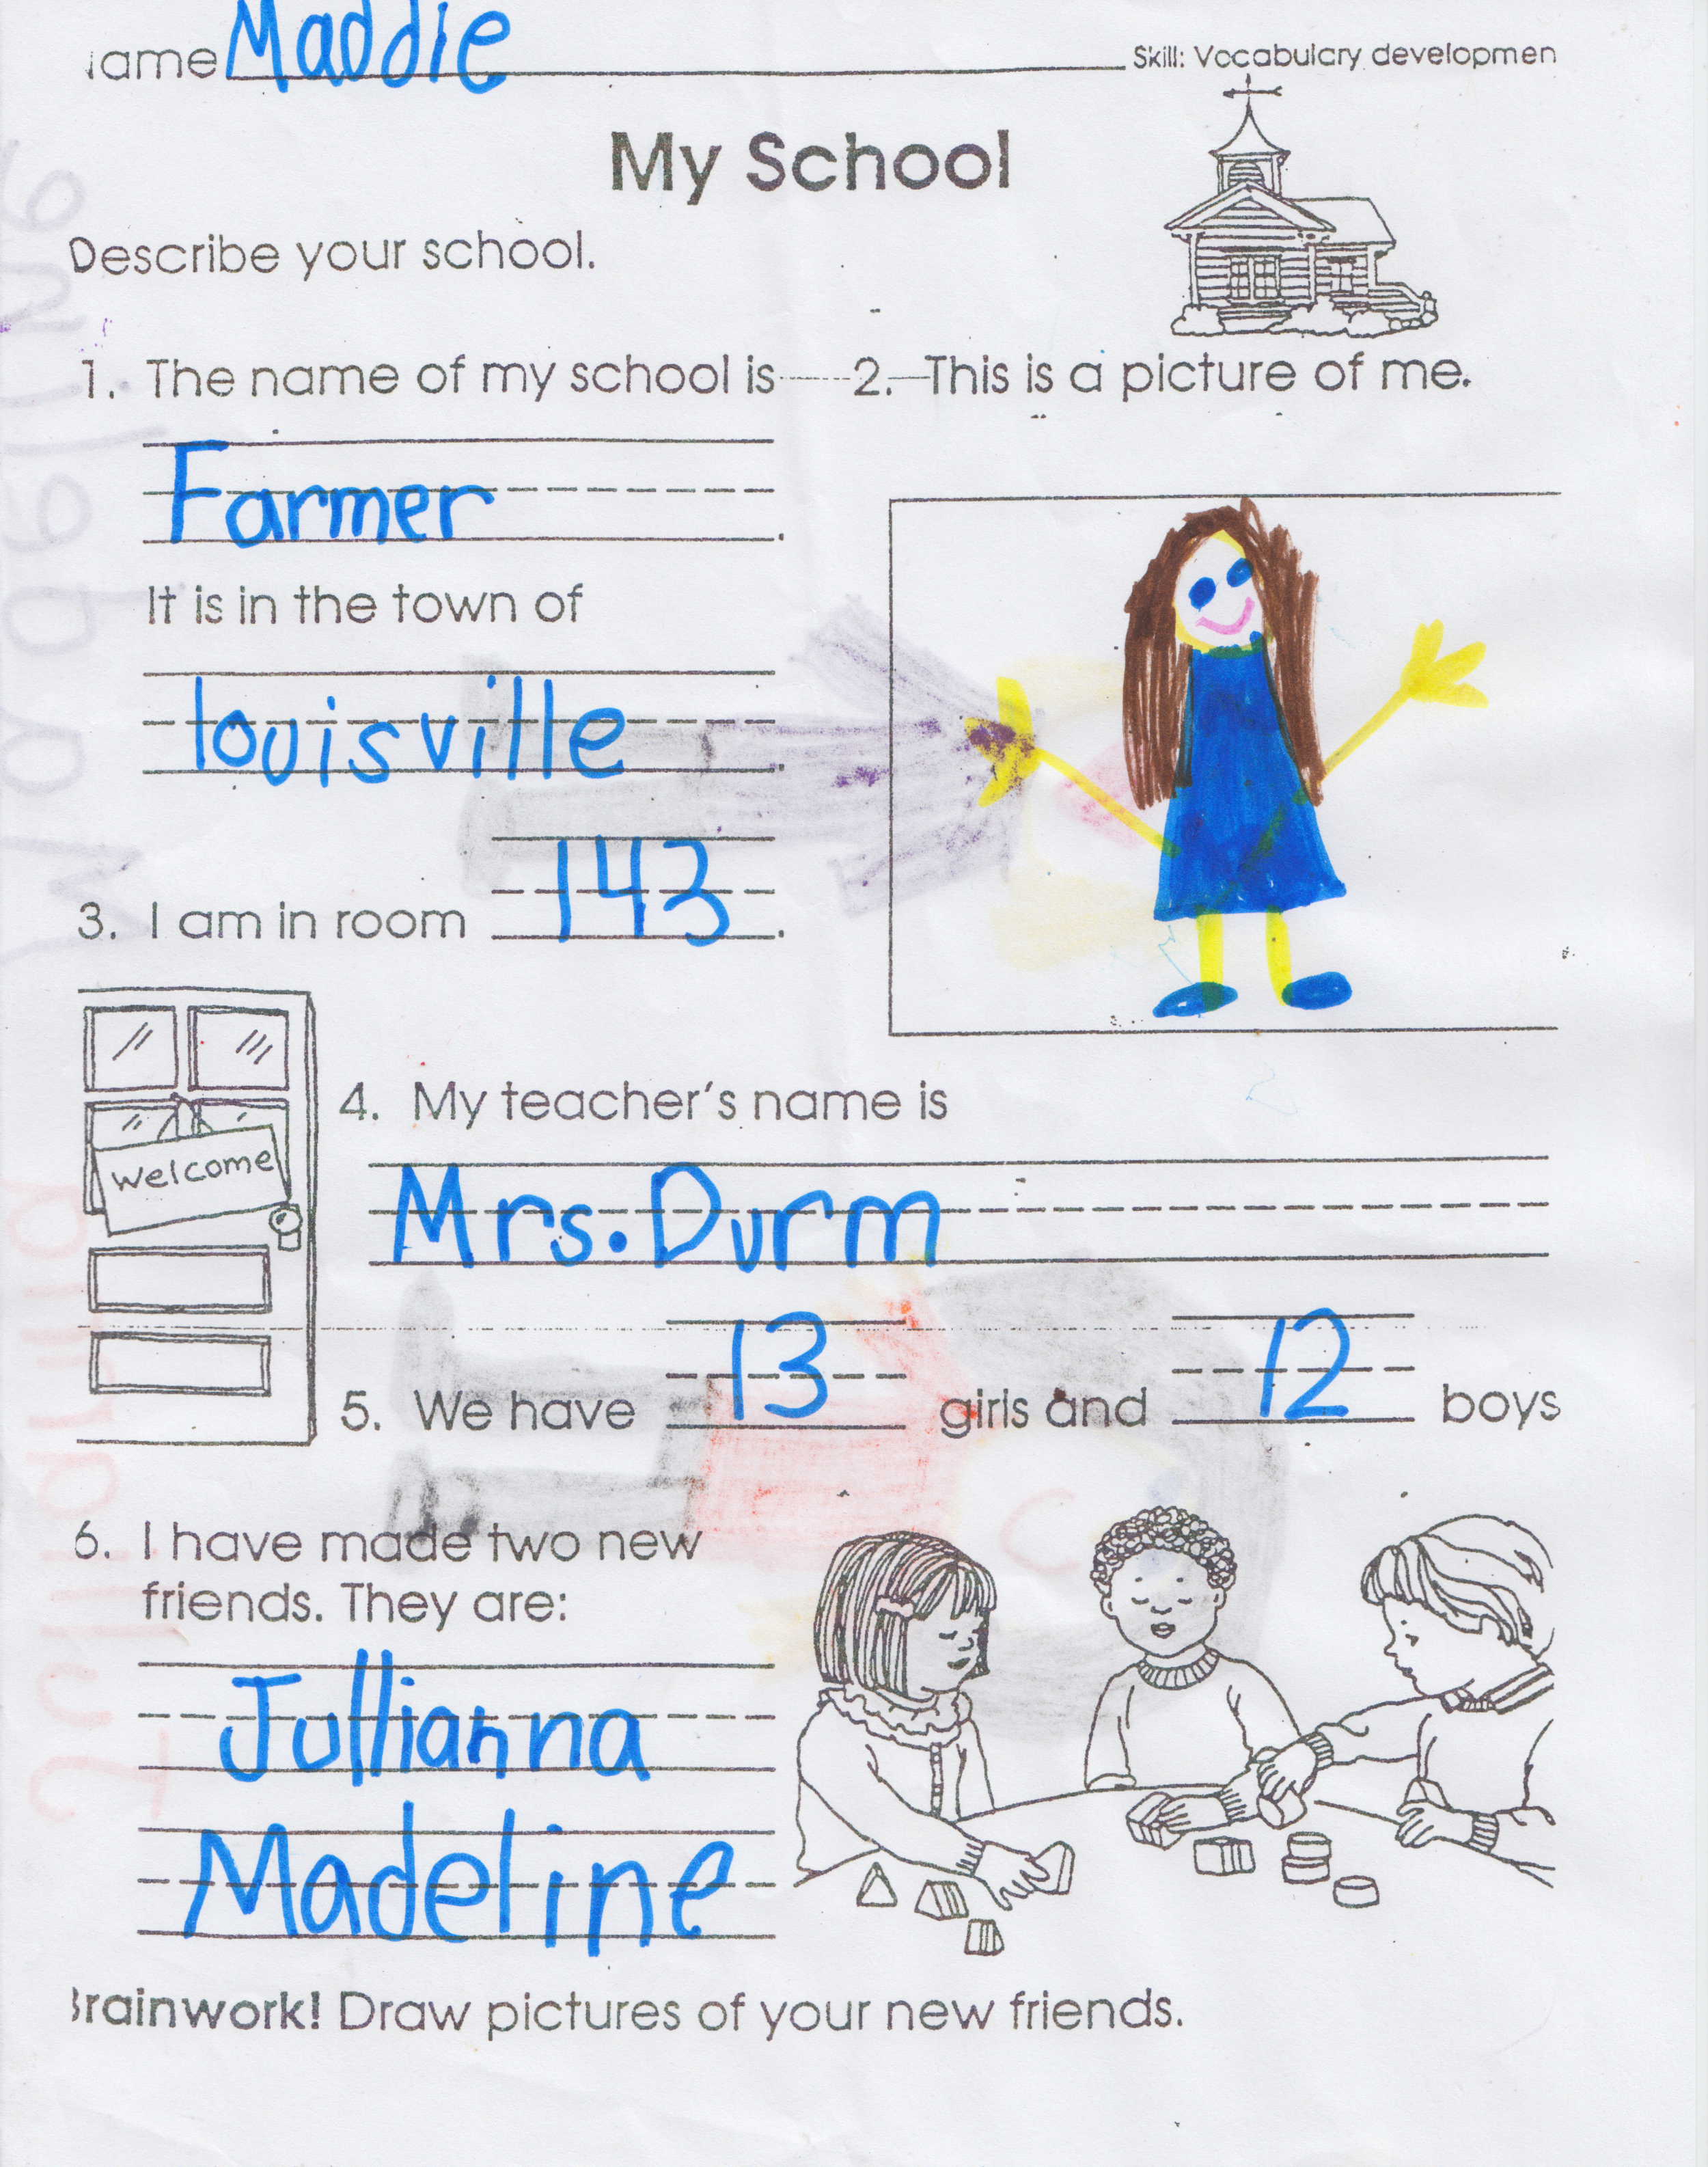 ame Maddie Skill: Vocabulary developmen
My School
Describe your school.
1. The name of my school is
Farmer.
It is in the town of
louisville.
2. This is a picture of me.
3. I am in room 143.
welcome
4. My teacher's name is
Mrs. Durm
5. We have 13 girls and 12 boys
6. I have made two new
friends. They are:
Jullianna
Madeline
rainwork! Draw pictures of your new friends.
Madeline
Jullianna